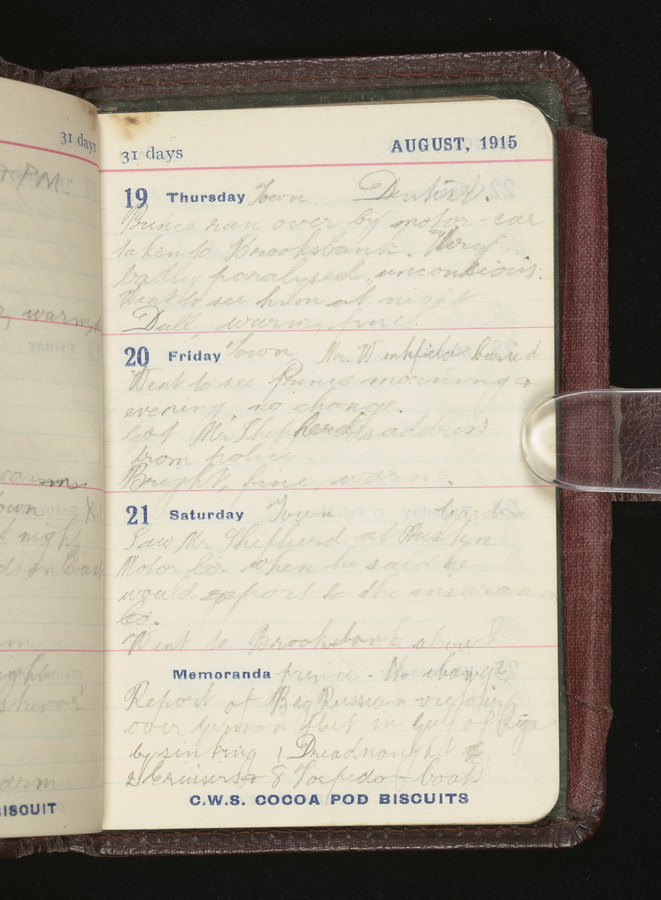 31 days
31 days AUGUST, 1915
19 Thursday Town Dentist.
Prince run over by motor-car
taken to Brooksbank. Very
badly paralysed, unconscious.
Went to see him at night
Dull, warm, fine.
20 Friday Town Mr. Winkfield buried
Went to see Prince morning &
evening, no change.
Got Mr Shepherd's address
from police.
Bright, fine, warm.
21 Saturday Town
Saw Mr Shepherd at Austin
Motor Co. when he said he
would report to the insuran
Co.
Went to Brooksbank about
Memoranda prince. No change
Report of Big Russian victory
over German fleet in Gulf of Riga
by sinking 1 Dreadnought
2 Cruisers & 8 Torpedo-boats
C.W.S. COCOA POD BISCUITS
PM
, warm,
warm
Town X
night
arm
ISCUIT